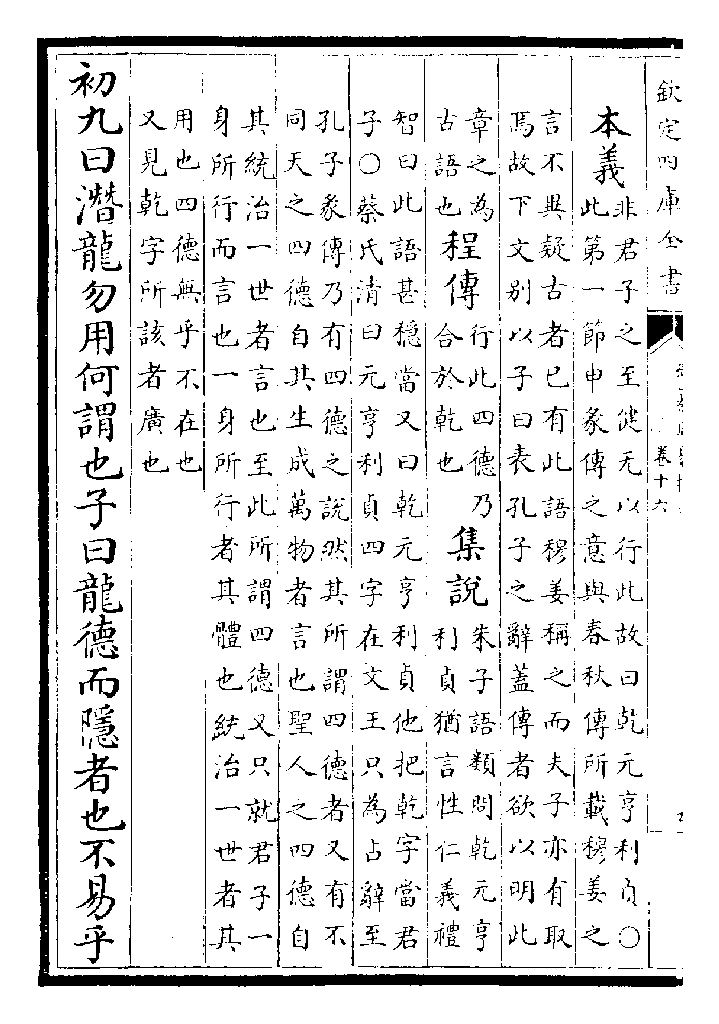 欽定四庫全書
卷十六
本義
非君子之至健无以行此故曰乾元亨利貞〇
此第一節申彖傳之意與春秋傳所載穆姜之
言不異疑古者已有此語穆姜稱之而夫子亦有取
焉故下文别以子曰表孔子之辭蓋傳者欲以明此
章之為
古語也
程傳
行此四德乃
合於乾也
集説
朱子語類問乾元亨
利貞猶言性仁義禮
智曰此語甚穩當又曰乾元亨利貞他把乾字當君
子〇蔡氏清曰元亨利貞四字在文王只為占辭至
孔子彖傳乃有四德之説然其所謂四德者又有不
同天之四德自其生成萬物者言也聖人之四德自
其統治一世者言也至此所謂四德又只就君子一
身所行而言也一身所行者其體也統治一世者其
用也四德無乎不在也
又見乾字所該者廣也
初九曰潛龍勿用何謂也子曰龍德而隱者也不易乎